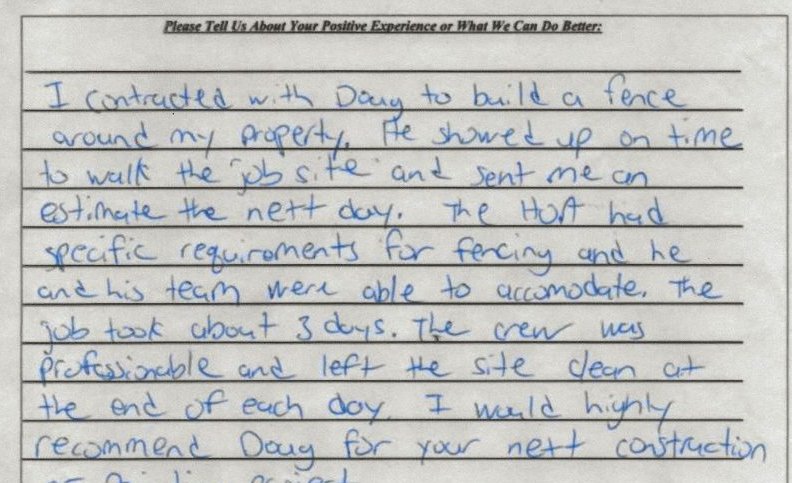 Please Tell Us About Your Positive Experience or What We Can Do Better:
I contracted with Doug to build a fence
around my property. He showed up on time
to walk the "job site" and sent me an
estimate the nett day. The HOA had
specific requirements for fencing and he
and his team were able to accomodate. The
job took about 3 days. The crew was
professionable and left the site clean at
the end of each day. I would highly
recommend Doug for your nett construction